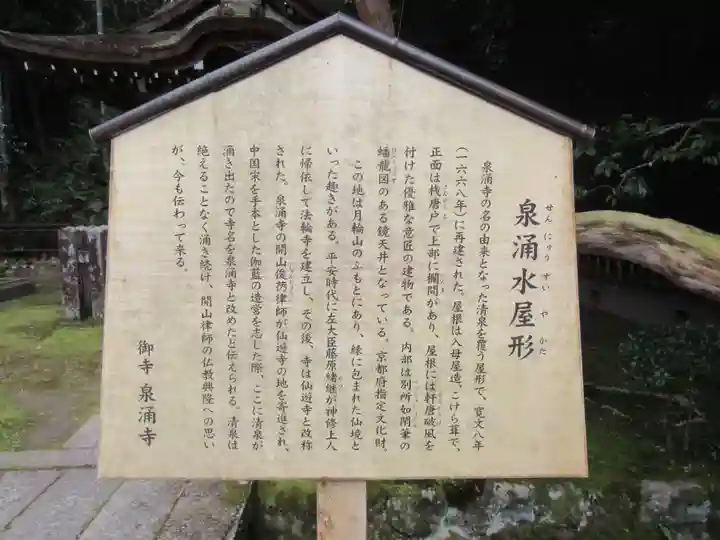 泉涌水屋形
せん にゅう すい や かた
泉涌寺の名の由来となった清泉を覆う屋形で、寛文八年
(一六六八年)に再建された。屋根は入母屋造、こけら葺で、
正面は桟唐戸で上部に欄間があり、屋根には軒唐破風を
付けた優雅な意匠の建物である。内部は別所如閑筆の
蟠龍図のある鏡天井となっている。京都府指定文化財。
この地は月輪山のふもとにあり、緑に包まれた仙境と
いった趣きがある。平安時代に左大臣藤原緒継が神修上人
に帰依して法輪寺を建立し、その後、寺は仙遊寺と改称
された。泉涌寺の開山俊芿律師が仙遊寺の地を寄進され、
中国宋を手本とした伽藍の造営を志した際、ここに清泉が
涌き出たので寺名を泉涌寺と改めたと伝えられる。清泉は
絶えることなく涌き続け、開山律師の仏教興隆への思い
が、今も伝わって来る。
御寺 泉涌寺